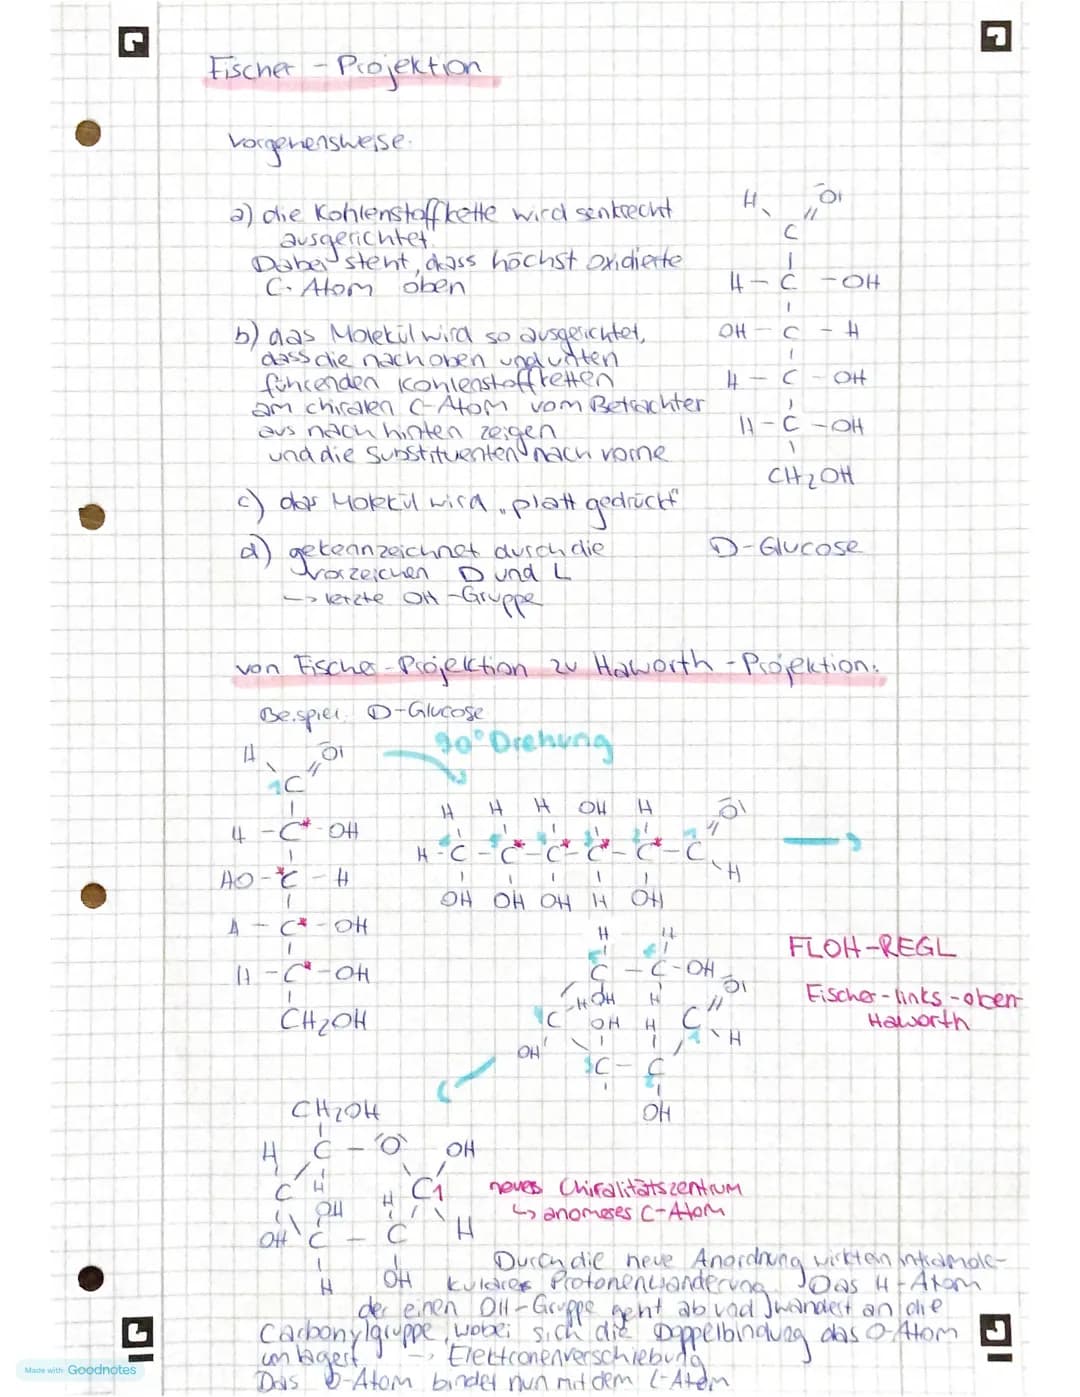 Fischer - Projektion
Vorgehensweise:
a) die Kohlenstoffkette wird senkrecht
ausgerichtet.
Dabei steht, dass höchst oxidierte
C-Atom oben
b) das Molekül wird so ausgerichtet,
dass die nach oben und unten
führenden Kohlenstoffketten
am chiralen C-Atom vom Betrachter
aus nach hinten zeigen
und die Substituenten nach vorne
c) das Molekül wird „platt gedrückt"
d) gekennzeichnet durch die
Vorzeichen D und L
-> letzte OH-Gruppe
H O
C
H - C - OH
OH - C - H
H - C - OH
H - C - OH
CH2OH
D-Glucose
von Fischer-Projektion zu Haworth-Projektion:
Beispiel: D-Glucose
90° Drehung
H O
1C
H - C* - OH
HO - *C - H
H - C* - OH
H - C* - OH
CH2OH
H H H OH H O
H - C - C* - C* - C* - C* - C
H
OH OH OH H OH
H H
C - C - OH
H OH H O
C OH H C
OH 1 H
3C - C
2
OH
FLOH-REGL
Fischer-links-oben-
Haworth
CH2OH
H C - O OH
C H H C1
OH
OH C - C H
H OH
neues Chiralitätszentrum
↳ anomeres C-Atom
Durch die neue Anordnung wirkt ein intramole-
kulares Protonenwanderung. Das H-Atom
der einen OH-Gruppe geht ab und wandert an die
Carbonylgruppe, wobei sich die Doppelbindung das O-Atom
umlagert -> Elektronenverschiebung
Das O-Atom bindet nun mit dem C-Atom
Made with Goodnotes